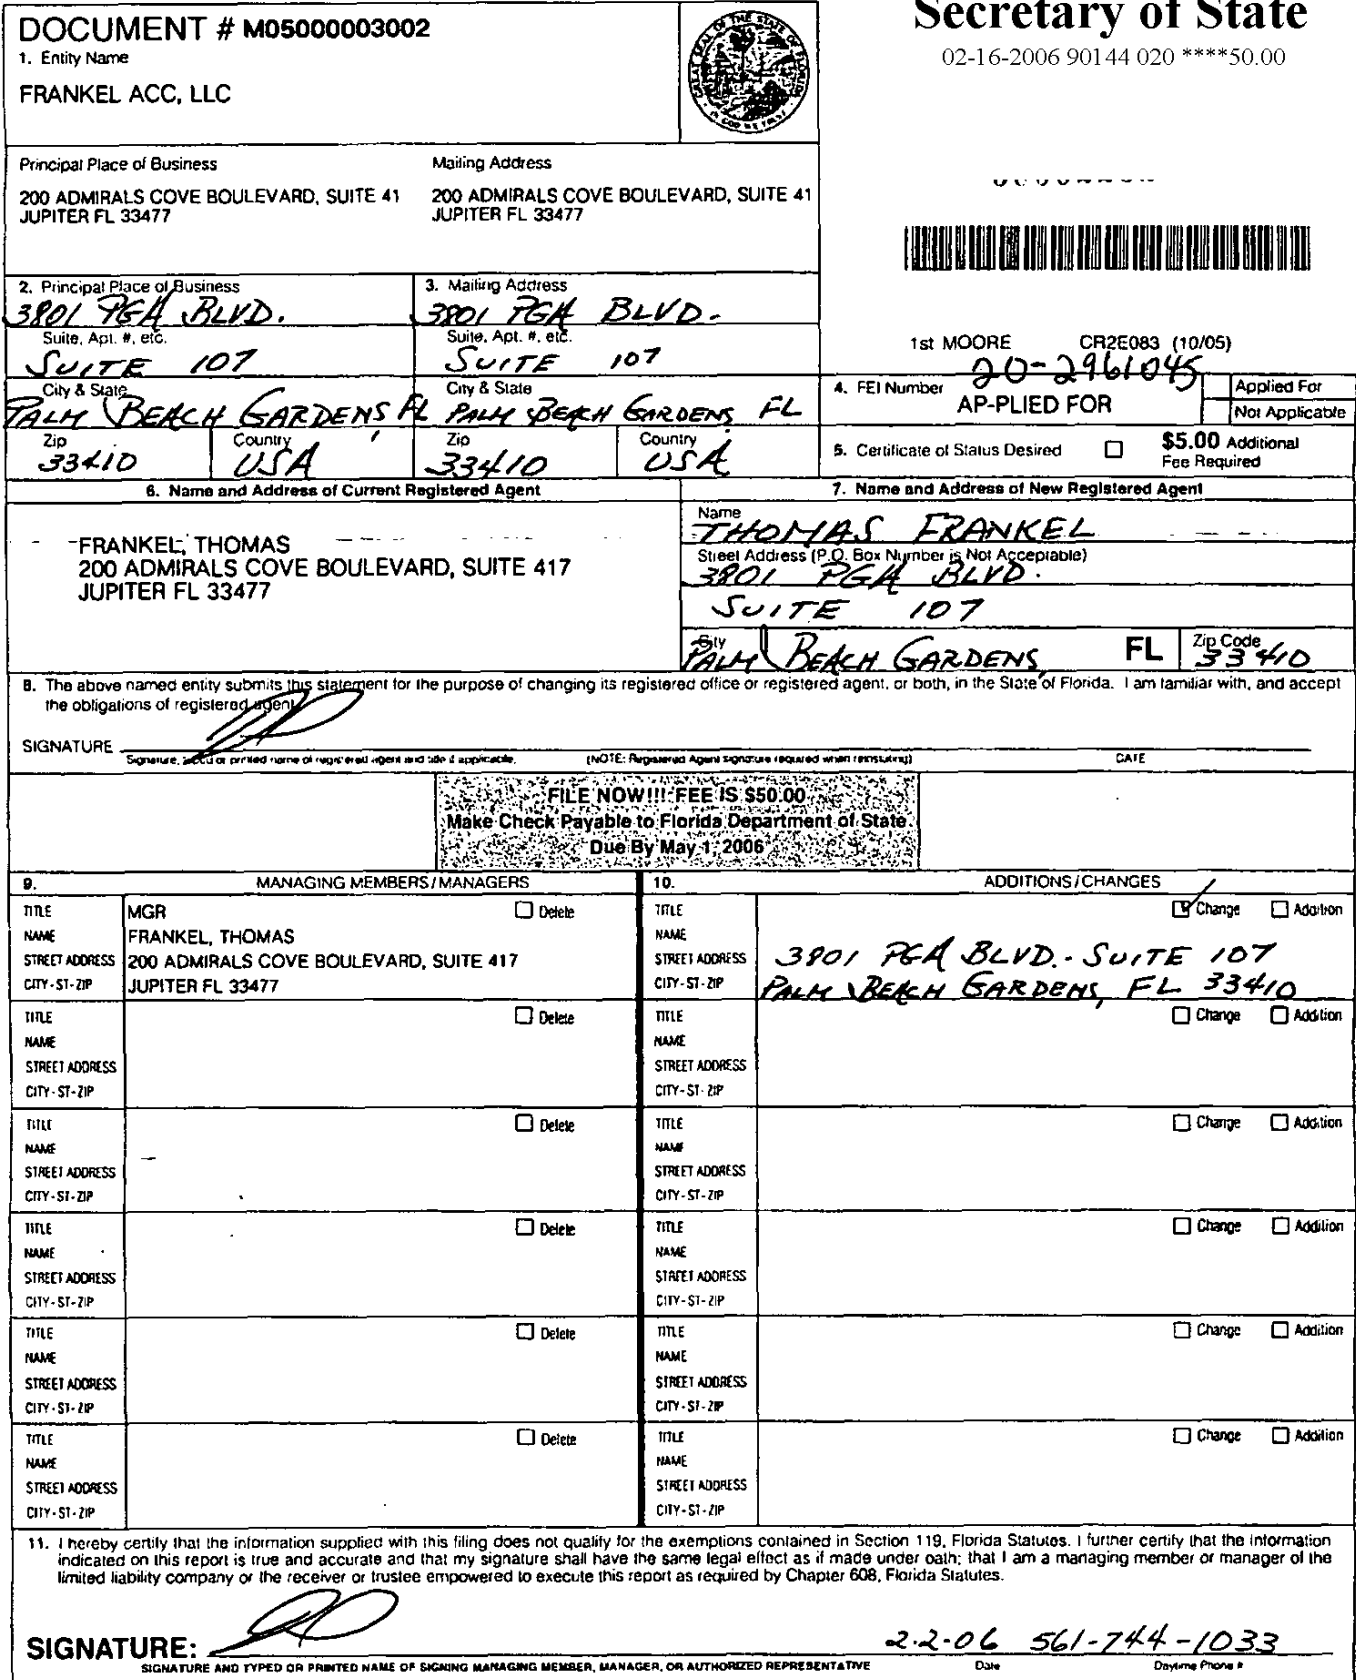 DOCUMENT # M05000003002
1. Entity Name
FRANKEL ACC, LLC
Secretary of State
02-16-2006 90144 020 ****50.00
Principal Place of Business
200 ADMIRALS COVE BOULEVARD, SUITE 41
JUPITER FL 33477
Mailing Address
200 ADMIRALS COVE BOULEVARD, SUITE 41
JUPITER FL 33477
2. Principal Place of Business
3801 PGA BLVD.
3. Mailing Address
3801 PGA BLVD.
Suite, Apt. #, etc.
SUITE 107
Suite, Apt. #, etc.
SUITE 107
City & State
PALM BEACH GARDENS, FL
City & State
PALM BEACH GARDENS, FL
Zip
33410
Country
USA
Zip
33410
Country
USA
1st MOORE CR2E083 (10/05)
4. FEI Number
20-2961045
AP-PLIED FOR
Applied For
Not Applicable
5. Certificate of Status Desired
$5.00 Additional
Fee Required
6. Name and Address of Current Registered Agent
FRANKEL, THOMAS
200 ADMIRALS COVE BOULEVARD, SUITE 417
JUPITER FL 33477
7. Name and Address of New Registered Agent
Name
THOMAS FRANKEL
Street Address (P.O. Box Number is Not Acceptable)
3801 PGA BLVD.
SUITE 107
City
PALM BEACH GARDENS
FL
Zip Code
33410
8. The above named entity submits this statement for the purpose of changing its registered office or registered agent, or both, in the State of Florida. I am familiar with, and accept
the obligations of registered agent.
SIGNATURE
Signature, typed or printed name of registered agent and title if applicable.
(NOTE: Registered Agent signature required when reinstating)
DATE
FILE NOW!!! FEE IS $50.00
Make Check Payable to Florida Department of State
Due By May 1, 2006
9. MANAGING MEMBERS/MANAGERS
10. ADDITIONS/CHANGES
TITLE MGR Delete
NAME FRANKEL, THOMAS
STREET ADDRESS 200 ADMIRALS COVE BOULEVARD, SUITE 417
CITY-ST-ZIP JUPITER FL 33477
TITLE Change Addition
NAME
STREET ADDRESS 3801 PGA BLVD. - SUITE 107
CITY-ST-ZIP PALM BEACH GARDENS, FL 33410
TITLE Delete
NAME
STREET ADDRESS
CITY-ST-ZIP
TITLE Change Addition
NAME
STREET ADDRESS
CITY-ST-ZIP
TITLE Delete
NAME
STREET ADDRESS
CITY-ST-ZIP
TITLE Change Addition
NAME
STREET ADDRESS
CITY-ST-ZIP
TITLE Delete
NAME
STREET ADDRESS
CITY-ST-ZIP
TITLE Change Addition
NAME
STREET ADDRESS
CITY-ST-ZIP
TITLE Delete
NAME
STREET ADDRESS
CITY-ST-ZIP
TITLE Change Addition
NAME
STREET ADDRESS
CITY-ST-ZIP
TITLE Delete
NAME
STREET ADDRESS
CITY-ST-ZIP
TITLE Change Addition
NAME
STREET ADDRESS
CITY-ST-ZIP
11. I hereby certify that the information supplied with this filing does not qualify for the exemptions contained in Section 119, Florida Statutes. I further certify that the information
indicated on this report is true and accurate and that my signature shall have the same legal effect as if made under oath; that I am a managing member or manager of the
limited liability company or the receiver or trustee empowered to execute this report as required by Chapter 608, Florida Statutes.
SIGNATURE:
2-2-06 561-744-1033
SIGNATURE AND TYPED OR PRINTED NAME OF SIGNING MANAGING MEMBER, MANAGER, OR AUTHORIZED REPRESENTATIVE
Date
Daytime Phone #